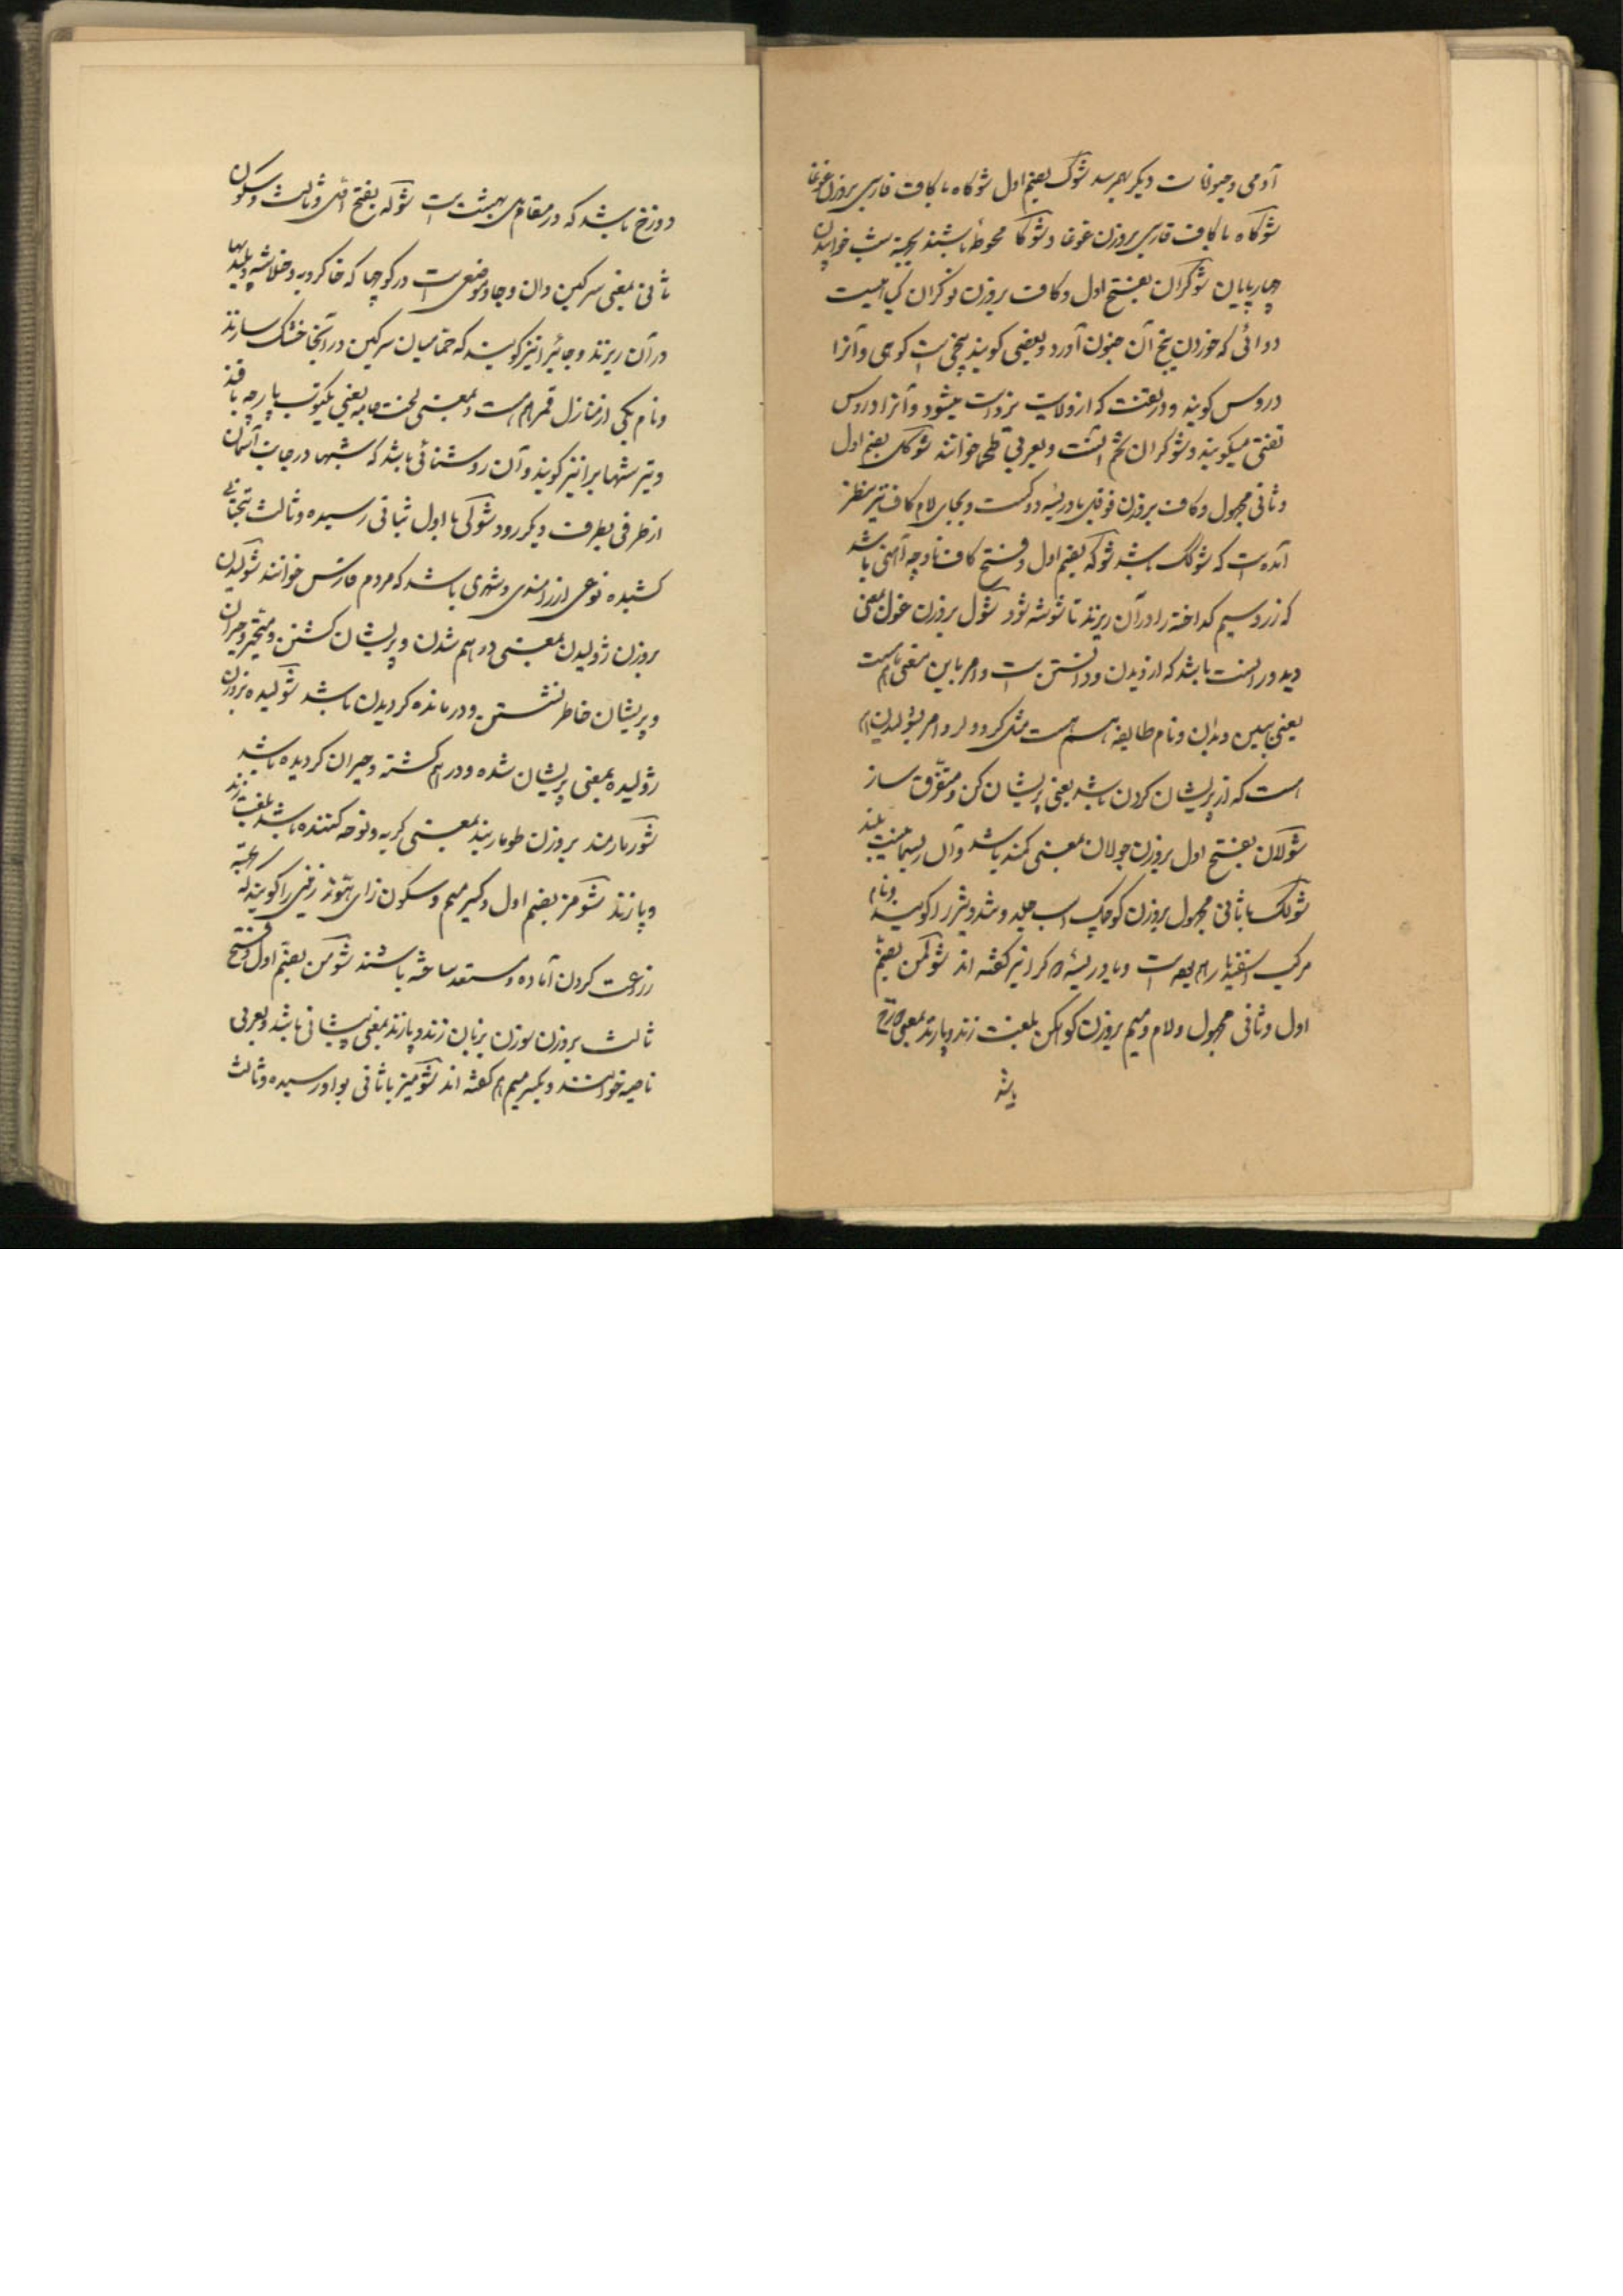 آدمی و حیوانات دیکر بهم رسد شوک بضم اول شوکاه با کاف فارسی بروزن غوغا
شوکاه با کاف فارسی بروزن غوغا و شوکا محوطهٔ باشند بجهة شب خوابیدن
چهارپایان شوکران بفتح اول و کاف بروزن نوکران کیاهیست
دوائی که خوردن بیخ آن جنون آورد و بعضی کویند بیخی است کوهی و آنرا
دروس کویند و در تفت که از ولایت یزد است میشود و آنرا دروس
تفتی میکویند و شوکران تخم آنست و بعربی طحما خوانند شوکل بضم اول
و ثانی مجهول و کاف بروزن فوفل بادریسه دوکست و بجای لام کاف نیز بنظر
آمده است که شوکک باشد شوکه بضم اول و فتح کاف ناوچه آهنی باشد
که زر و سیم کداخته را در آن ریزند تا شوشه شود شول بروزن غول بمعنی
دید و دانست باشد که از دیدن و دانستن است و امر باین معنی هم هست
یعنی ببین و بدان و نام طایفه هم هست مثل کرد و لر و امر بشولیدن هم
است که از پریشان کردن باشد یعنی پریشان کن و متفرق ساز
شولان بفتح اول بروزن جولان بمعنی کمند باشد و آن ریسمانیست بلند
شولک با ثانی مجهول بروزن کوچک اسب جلد و تند و تیزرو را کویند و نام
مرکب اسفندیار هم بوده است و بادریسه دوک را نیز کفته اند شولمن بضم
اول و ثانی مجهول و لام و میم بروزن کوهکن بلغت زند و پازند بمعنی دوزخ
باشد
دوزخ باشد که در مقام بهشت است شوله بفتح اول و ثالث و سکون
ثانی بمعنی سرکین دان و جا و موضعی است در کوچها که خاکروبه و خلاشه و پلیدیها
در آن ریزند و جائیرا نیز کویند که حمامیان سرکین در آنجا خشک سازند
و نام یکی از منازل قمر هم هست و بمعنی لخت جامه یعنی یکتوب پارچه بافند
و تیر شهابرا نیز کویند و آن روشنائی باشد که شبها در جانب آسمان
از طرفی بطرف دیکر رود شولی با اول بثانی رسیده و ثالث بتحتانی
کشیده نوعی از راسن و شهری باشد که مردم فارس خوانند شولیدن
بروزن ژولیدن بمعنی درهم شدن و پریشان کشتن و متحیر و حیران
و پریشان خاطر نشستن و درمانده کردیدن باشد شولیده بروزن
ژولیده بمعنی پریشان شده و درهم کشته و حیران کردیده باشد
شومارمند بروزن طوماربند بمعنی کریه و نوحه کننده باشد بلغت زند
و پازند شومز بضم اول و کسر میم و سکون زای هوز زمینی را کویند که بجهة
زراعت کردن آماده و مستعد ساخته باشند شومن بضم اول و فتح
ثالث بروزن سوزن بزبان زند و پازند بمعنی پیشانی باشد و بعربی
ناصیه خوانند و بکسر میم هم کفته اند شومیز با ثانی بواو رسیده و ثالث